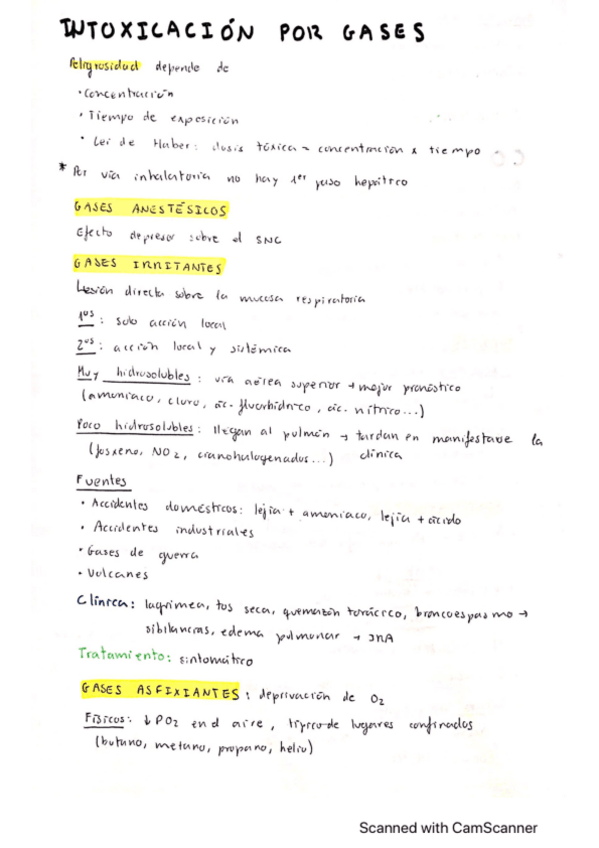 INTOXICACIÓN POR GASES
Peligrosidad depende de
· Concentración
· Tiempo de exposición
· Lei de Haber: dosis tóxica = concentración x tiempo
* Por vía inhalatoria no hay 1er paso hepático
GASES ANESTÉSICOS
Efecto depresor sobre el SNC
GASES IRRITANTES
Lesión directa sobre la mucosa respiratoria
1os: solo acción local
2os: acción local y sistémica
Muy hidrosolubles: vía aérea superior → mejor pronóstico
(amoniaco, cloro, ác. fluorhídrico, ác. nítrico...)
Poco hidrosolubles: llegan al pulmón → tardan en manifestarse la
(fosxeno, NO2, cianohalogenados...) clínica
Fuentes
· Accidentes domésticos: lejía + amoniaco, lejía + ácido
· Accidentes industriales
· Gases de guerra
· Volcanes
Clínica: lagrimea, tos seca, quemazón torácico, broncoespasmo →
sibilancias, edema pulmonar →
Tratamiento: sintomático
GASES ASFIXIANTES: deprivación de O2
Físicos: ↓ PO2 en el aire, típico de lugares confinados
(butano, metano, propano, helio)
Scanned with CamScanner